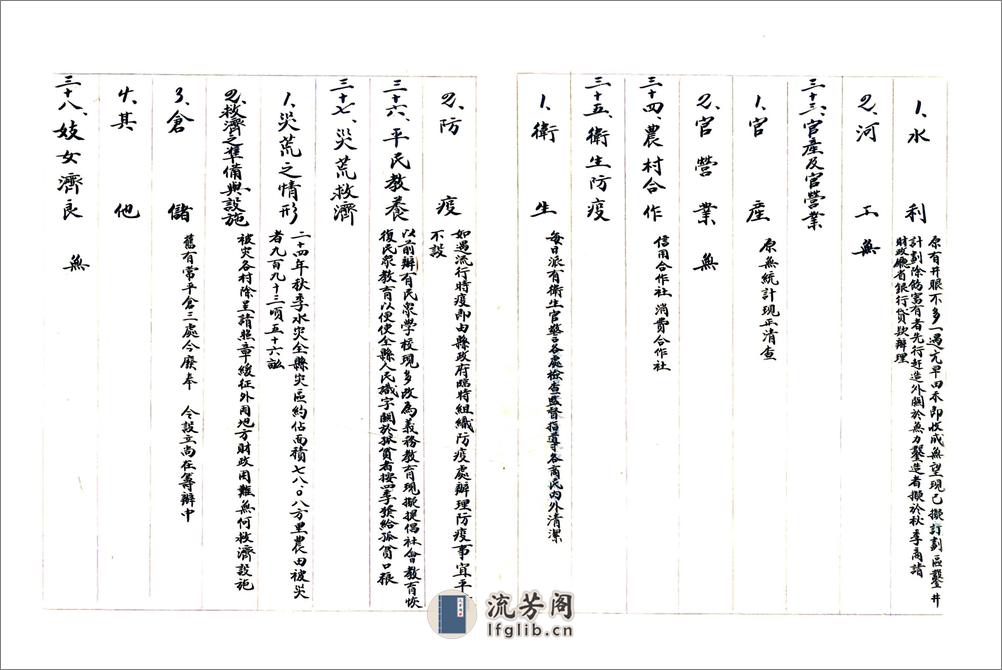 1、水利
原有井眼不多一遇亢旱田禾即收成無望現已擬訂劃區鑿井
計劃除錢富有者先行赶造外關於無力鑿造者擬於秋季商請
財政廳省銀行貸款辦理
2、河工 無
三十三、官產及官營業
1、官產
原無統計現正清查
2、官營業 無
三十四、農村合作
信用合作社、消費合作社
三十五、衛生防疫
1、衛生
每日派有衛生官警各處檢查監督指導各商民內外清潔
2、防疫
如遇流行時疫即由縣政府臨時組織防疫處辦理防疫事宜平
不設
三十六、平民教養
以前辦有民眾學校現多改為義務教育現擬提倡社會教育恢
復民眾教育以便使全縣人民識字關於孤貧者按四季發給孤貧口粮
三十七、災荒救濟
1、災荒之情形
二十四年秋季水災全縣災區約佔面積七八〇八方里農田被災
者九百九十三頃五十六畝
2、救濟之準備與設施
被災各村除呈請照章緩征外因地方財政困難無何救濟設施
3、倉儲
舊有常平倉三處今廢奉 令設立尚在籌辦中
4、其他
三十八、妓女濟良 無
流芳阁
lfglib.cn